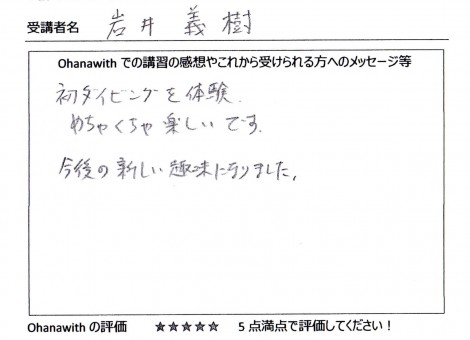 受講者名 岩井 義樹
Ohanawith での講習の感想やこれから受けられる方へのメッセージ等
初ダイビングを体験.
めちゃくちゃ楽しいです.
今後の新しい趣味になりました.
Ohanawith の評価 ★★★★★ 5 点満点で評価してください！